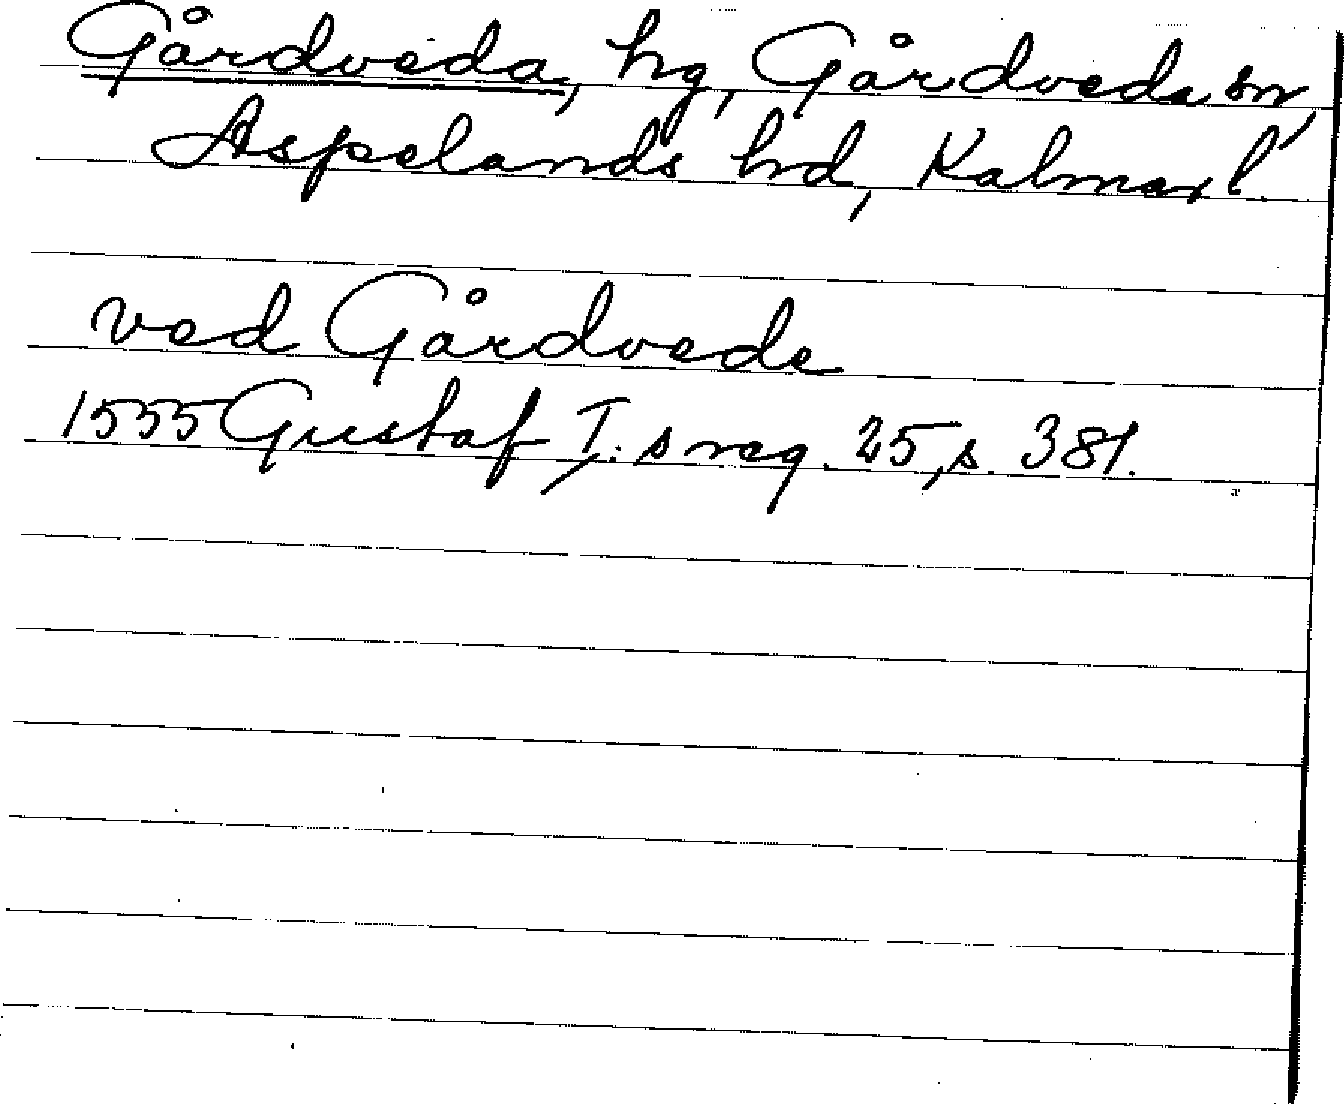 Gårdveda, hg, Gårdveda sn,
Aspelands hd, Kalmar l.
ved Gårdvede
1555 Gustaf I:s reg. 25, s. 381.